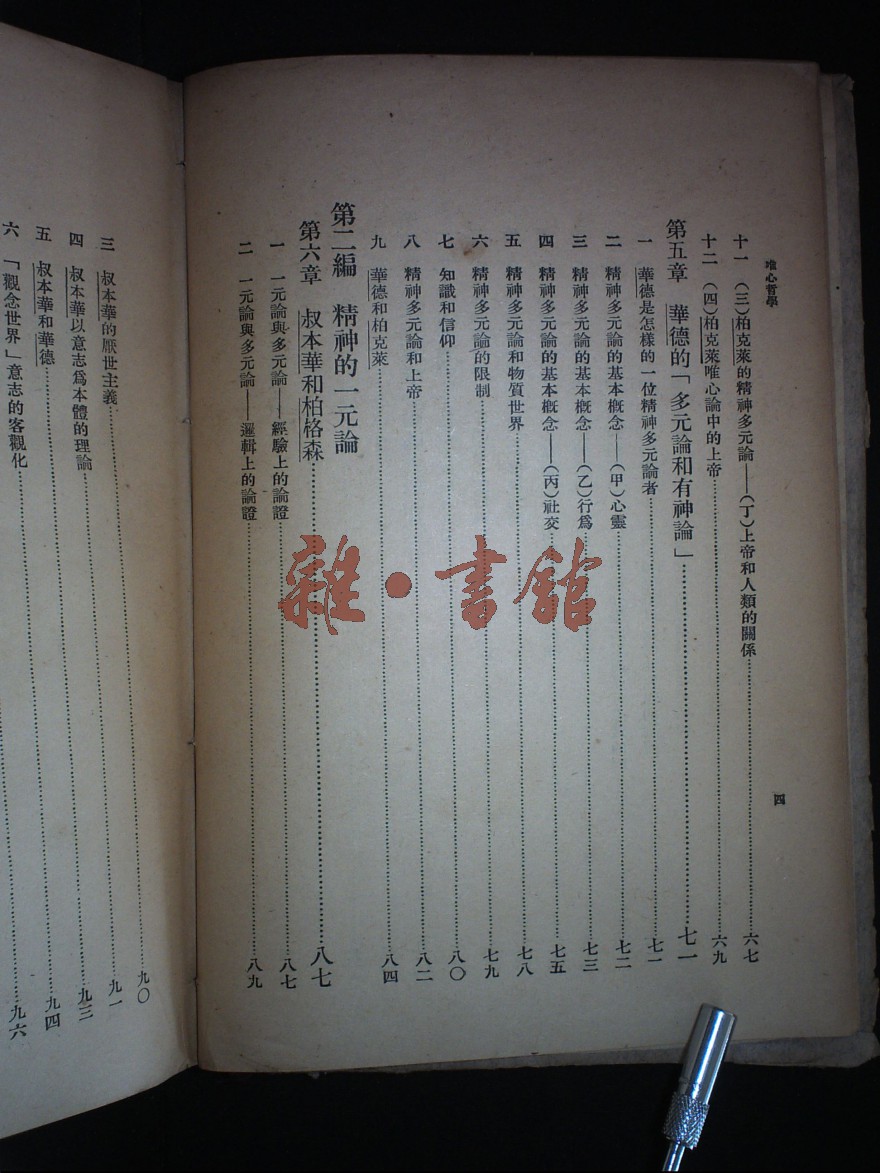 唯心哲學
四
十一 (三)柏克萊的精神多元論——(丁)上帝和人類的關係……六七
十二 (四)柏克萊唯心論中的上帝……六九
第五章 華德的「多元論和有神論」……七一
一 華德是怎樣的一位精神多元論者……七一
二 精神多元論的基本概念——(甲)心靈……七二
三 精神多元論的基本概念——(乙)行爲……七三
四 精神多元論的基本概念——(丙)社交……七五
五 精神多元論和物質世界……七八
六 精神多元論的限制……七九
七 知識和信仰……八〇
八 精神多元論和上帝……八二
九 華德和柏克萊……八四
第二編 精神的一元論
第六章 叔本華和柏格森……八七
一 一元論與多元論——經驗上的論證……八七
二 一元論與多元論——邏輯上的論證……八九
三 叔本華的厭世主義……九〇
四 叔本華以意志爲本體的理論……九一
五 叔本華和華德……九三
六 「觀念世界」意志的客觀化……九四
九六
雜·書館